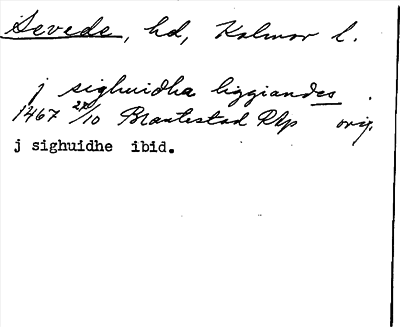 Sevede, hd, Kalmar l.
j sighuidha liggiandes.
1467 27/10 Brantestad RAp orig.
j sighuidhe ibid.